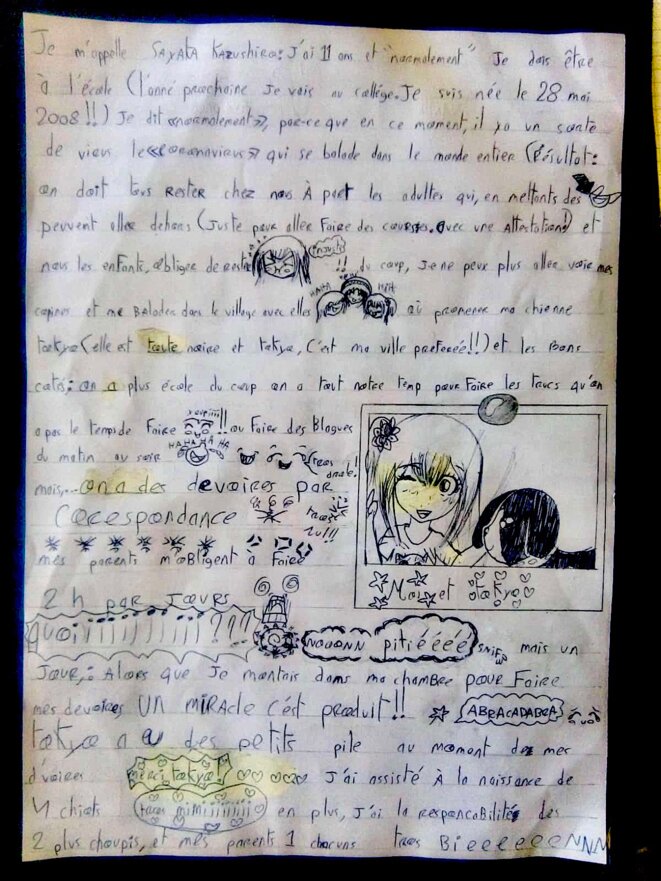 Je m'appelle SAYAKA KAZUSHIRO: J'ai 11 ans et "normalement" Je dois être
à l'école (l'anné prochaine Je vais au collége. Je suis née le 28 mai
2008!!) Je dit «normalement», par-ce que en ce moment, il ya un sorte
de virus le «coronavirus» qui se balade dans le monde entier (Résultat:
on doit tous RESTER chez nous À part les adultes qui, en mettants des
peuvent aller dehors (Juste pour aller Faire des courses. avec une Attestation!) et
nous les enfants, obliger de rester
injuste
!! du coup, Je ne peux plus aller voir mes
HAHA HAH
copines et me balader dans le village avec elles où promener ma chienne
tokyo (elle est toute noire et tokyo, c'est ma ville preferée!!) et les bons
cotés: on a plus école du coup on a tout notre temp pour faire les trucs qu'on
a pas le temps de Faire youpiiii!! ou Faire des Blagues
HAHAHAHA
du matin au soir tros drole!
mais... on a des devoires par
Corespondance tros nul!!
mes parents m'obligent à Faire
2 h par Jours
quoiiiiiiiiii???
NOOONN pitiéééé SNIF mais un
Jour,: Alors que Je montais dans ma chambre pour Faire
mes devoires UN MIRACLE c'est produit!! ABRACADABRA
tokyo n a des petits pile au moment de mes
d'voires merci tokyo! J'ai assisté À la naissance de
4 chiots tros mimiiiiiiii en plus, J'ai la responcabilités des
2 plus choupis, et mes parents 1 chacuns tros BieeeeeeNNN
Moi et tokyo